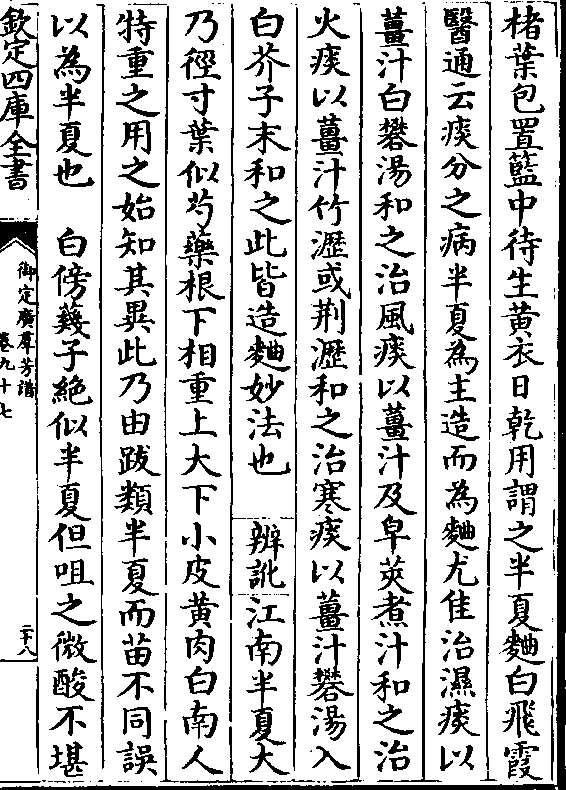 楮葉包置籃中待生黃衣日乾用謂之半夏麯白飛霞
醫通云痰分之病半夏為主造而為麯尤佳治濕痰以
薑汁白礬湯和之治風痰以薑汁及皁莢煮汁和之治
火痰以薑汁竹瀝或荆瀝和之治寒痰以薑汁礬湯入
白芥子末和之此皆造麯妙法也 辨訛 江南半夏大
乃徑寸葉似芍藥根下相重上大下小皮黃肉白南人
特重之用之始知其異此乃由跋類半夏而苗不同誤
以為半夏也 白傍蕤子絶似半夏但咀之微酸不堪
欽定四庫全書
御定廣羣芳譜
卷九十七
二十八